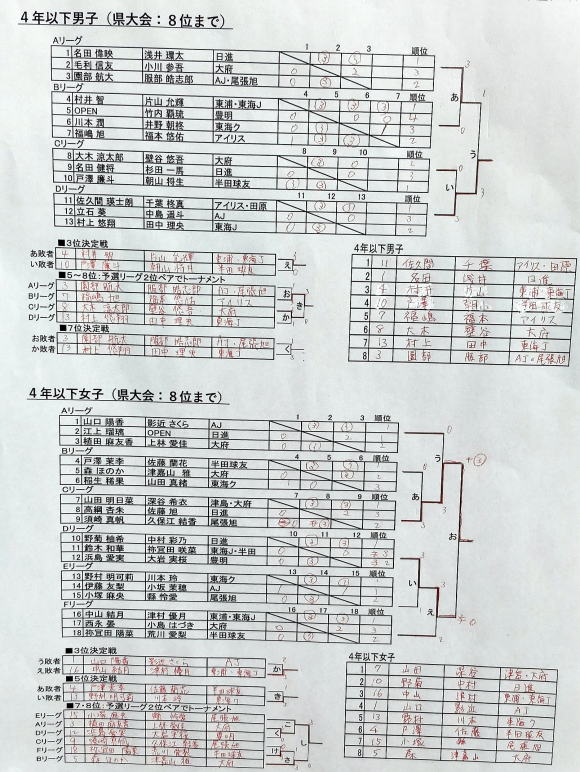 4年以下男子（県大会：8位まで）
Aリーグ 1 2 3 順位
1 名田 偉映 浅井 環太 日進 ③ ③ 1
2 毛利 信友 小川 参吾 大府 0 2 3
3 園部 航大 服部 皓志郎 AJ・尾張旭 0 ③ 2
Bリーグ 4 5 6 7 順位
4 村井 智 片山 允輝 東浦・東海J ③ ③ ③ 1
5 OPEN 竹内 覇琉 豊明 0 0 4
6 川本 潤 井野 朝柊 東海ク 0 3
7 福嶋 旭 福本 悠佑 アイリス 2
Cリーグ 8 9 10 順位
8 大木 涼太郎 壁谷 悠吾 大府 ③ 0 2
9 名田 健将 杉田 一馬 日進 0 0 3
10 戸澤 廉斗 朝山 将生 半田球友 ③ ③ 1
Dリーグ 11 12 13 順位
11 佐久間 瑛士朗 千葉 柊真 アイリス・田原 ③ ③ 1
12 立石 葵 中島 遥斗 AJ 0 0 3
13 村上 悠翔 田中 理央 東海J 0 ③ 2
あ い う
■3位決定戦
あ敗者 4 村井 智 片山 允輝 東浦・東海J
い敗者 10 戸澤 廉斗 朝山 将生 半田球友
え
■5～8位：予選リーグ2位ペアでトーナメント
Aリーグ 3 園部 航大 服部 皓志郎 AJ・尾張旭
Bリーグ 7 福嶋 旭 福本 悠佑 アイリス
Cリーグ 8 大木 涼太郎 壁谷 悠吾 大府
Dリーグ 13 村上 悠翔 田中 理央 東海J
お か き
■7位決定戦
お敗者 3 園部 航大 服部 皓志郎 AJ・尾張旭
か敗者 13 村上 悠翔 田中 理央 東海J
く
4年以下男子
1 11 佐久間 千葉 アイリス・田原
2 1 名田 浅井 日進
3 4 村井 片山 東浦・東海J
4 10 戸澤 朝山 半田球友
5 7 福嶋 福本 アイリス
6 8 大木 壁谷 大府
7 13 村上 田中 東海J
8 3 園部 服部 AJ・尾張旭
4年以下女子（県大会：8位まで）
Aリーグ 1 2 3 順位
1 山口 陽香 影近 さくら AJ ③ ③ 1
2 江上 瑠璃 OPEN 日進 0 2
3 植田 麻友香 上林 愛佳 大府 0
Bリーグ 4 5 6 順位
4 戸澤 茉李 佐藤 蘭花 半田球友 ③ ③ 1
5 森 ほのか 津嘉山 雅 大府 0 ③ 2
6 稲生 稀果 山田 真緒 東海ク 0
Cリーグ 7 8 9 順位
7 山田 明日菜 深谷 希衣 津島・大府 ③ ③ 1
8 高綱 杏朱 佐藤 旭 日進 0 2 3
9 須崎 真帆 久保江 結香 尾張旭 2
Dリーグ 10 11 12 順位
10 野菊 柚希 中村 彩乃 日進 ③ ③ 1
11 鈴木 和華 祢宜田 咲菜 東海J・半田 0 0 3
12 浜島 愛実 大岩 実桜 豊明 0 ③ 2
Eリーグ 13 14 15 順位
13 野村 明可莉 川本 玲 東海ク ③ 1
14 伊藤 友梨 小坂 茉穂 AJ 0
15 小塚 麻央 縣 怜愛 尾張旭 0 2
Fリーグ 16 17 18 順位
16 中山 結月 津村 優月 東浦・東海J ③ ③ 1
17 西永 晏 小島 はづき 大府 0 2 3
18 祢宜田 陽菜 荒川 愛梨 半田球友 0 ③ 2
あ う い え お
■3位決定戦
う敗者 1 山口 陽香 影近 さくら AJ
え敗者 16 中山 結月 津村 優月 東浦・東海J
か
■5位決定戦
あ敗者 4 戸澤 茉李 佐藤 蘭花 半田球友
い敗者 13 野村 明可莉 川本 玲 東海ク
き
■7・8位：予選リーグ2位ペアでトーナメント
Eリーグ 15 小塚 麻央 縣 怜愛 尾張旭
Aリーグ 3 植田 麻友香 上林 愛佳 大府
Dリーグ 12 浜島 愛実 大岩 実桜 豊明
Cリーグ 9 須崎 真帆 久保江 結香 尾張旭
Fリーグ 18 祢宜田 陽菜 荒川 愛梨 半田球友
Bリーグ 5 森 ほのか 津嘉山 雅 大府
こ け さ し
4年以下女子
1 7 山田 深谷 津島・大府
2 10 野菊 中村 日進
3 16 中山 津村 東浦・東海J
4 1 山口 影近 AJ
5 13 野村 川本 東海ク
6 4 戸澤 佐藤 半田球友
7 15 小塚 縣 尾張旭
8 5 森 津嘉山 大府